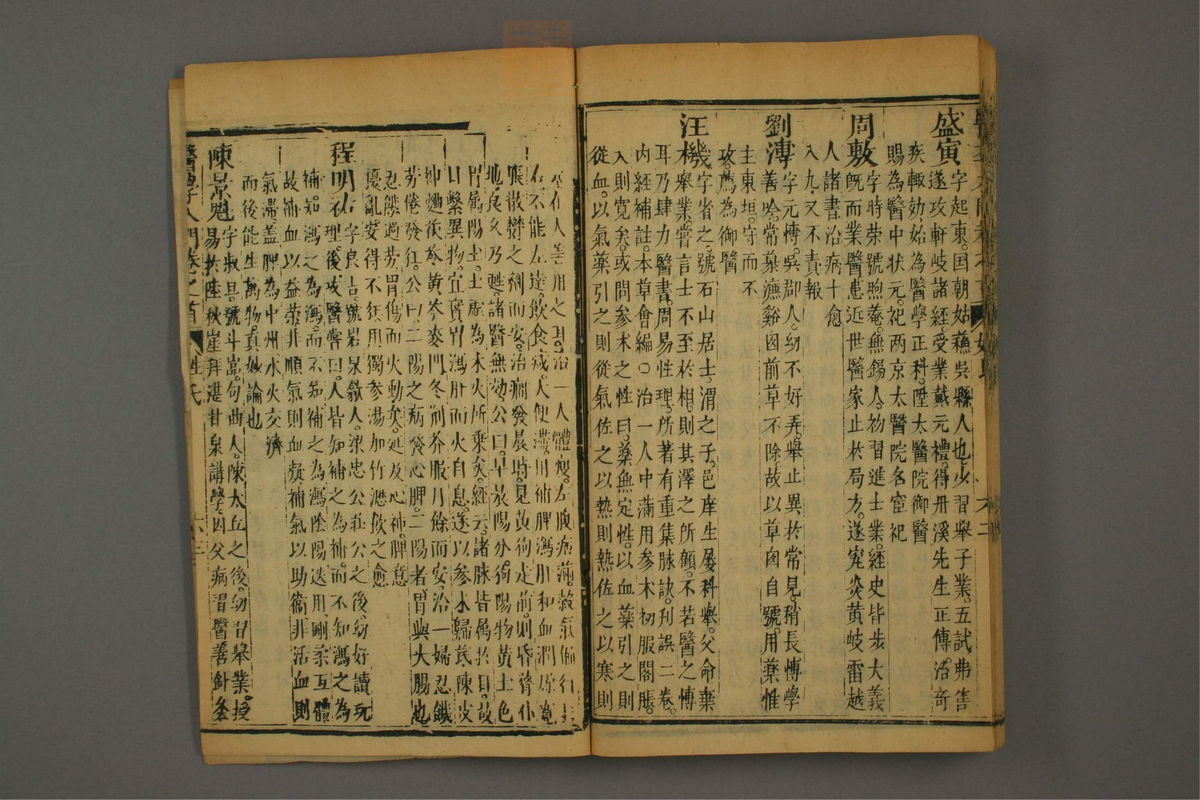 盛寅字起東国朝姑蘇吳縣人也少習舉子業五試弗售
遂攻軒岐諸經受業戴元禮得丹溪先生正傳治奇
疾輒効始為醫學正科陞太醫院御醫
賜為醫中状元祀两京太醫院名宦祀
周敷字時荣號煦菴無錫人初習進士業經史皆步大義
既而業醫患近世醫家止於局方遂究炎黄岐雷越
人諸書治病十愈
八九又不責報
劉溥字元博吳郡人㓜不好弄舉止異於常見稍長博學
善吟常慕濂谿囱前草不除故以草囱自號用藥惟
主東垣守而不
攻薦為御醫
汪機字省之號石山居士渭之子邑庠生屡科舉父命棄
科舉業嘗言士不至於相則其澤之所顧不若醫之博
耳乃肆力醫書周易性理所著有重集脉訣刋誤二卷
内經補註本草會編○治一人中滿用參术初服閣脹
久則寬矣或問参术之性曰藥無定性以血藥引之則
從血以氣藥引之則從氣佐之以熱則熱佐之以寒則
在人善用之耳治一人體瘦左腹痞滿榖氣偏行
右不能左達飲食减大便滯用補脾瀉肝和血潤燥寬
地良久乃甦諸醫無効公曰早晨陽分狗陽物黄土色
胃属陽土土虚為木火所乗矣經云諸脉皆属於目故
目繫異物宜實胃瀉肝而火自息遂以参术歸芪陳皮
神麯茯苓黄芩麥門冬荊芥服月餘而安治一婦忍饑
劳倦發狂公曰二陽之病發心脾二陽者胃與大腸也
忍饑過劳胃傷而火動矣延及心神脾意
擾亂安得不狂用獨參湯加竹瀝飲之愈
程明祐字良吉號岩泉歙人梁忠公莊公之後㓜好讀玩
名理後攻醫嘗曰人皆知補之為補而不知瀉之為
補知瀉之為瀉而不知補之為瀉陰陽迭用剛柔互體
故補血以益荣非順氣則血凝補氣以助衛非活血則
氣滯盖脾為中州水火交濟
而後能生萬物真妙論也
陳景魁字叔旦號斗嵓句曲人陳太丘之後㓜習舉業授
易於陸秋崖拜湛甘泉講學因父病習醫善針灸
醫學入門卷之首 姓氏 六三